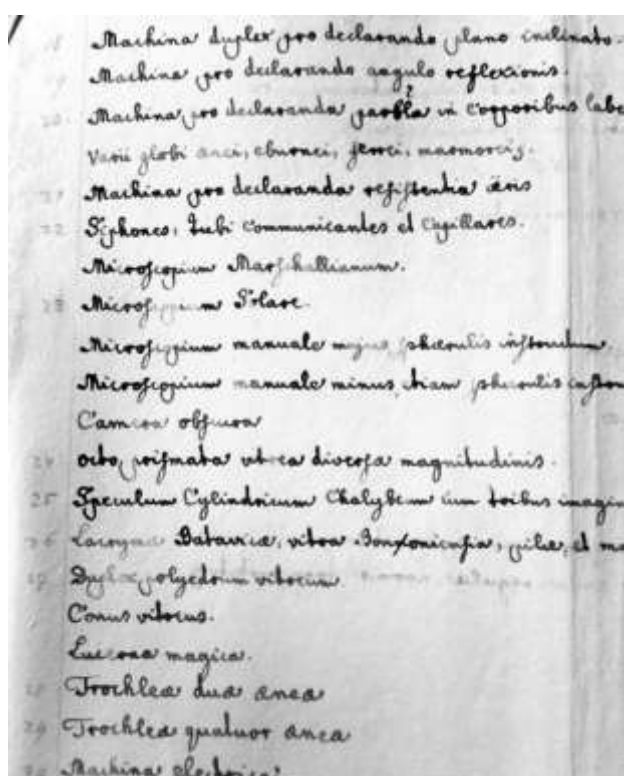 18 Machina duplex pro declarando plano inclinato.
19 Machina pro declarando angulo reflexionis.
20 Machina pro declaranda in corporibus
Varii globi ænei, eburnei, ferrei, marmorei.
21 Machina pro declaranda resistentia aëris
22 Siphones, tubi communicantes et capillares.
Microscopium Marschallianum.
23 Microscopium Solare.
Microscopium manuale majus, sphærulis instructum.
Microscopium manuale minus, etiam sphærulis
Camera obscura
24 octo prismata vitrea diversæ magnitudinis.
25 Speculum Cylindricum Chalybeum cum tribus
26 Lacrymæ Batavicæ, vitra Bononiensia, pilæ, et
27 Duplex polyedrum vitreum.
Conus vitreus.
Lucerna magica.
28 Trochleæ duæ æneæ
29 Trochleæ quatuor æneæ
30 Machina electrica